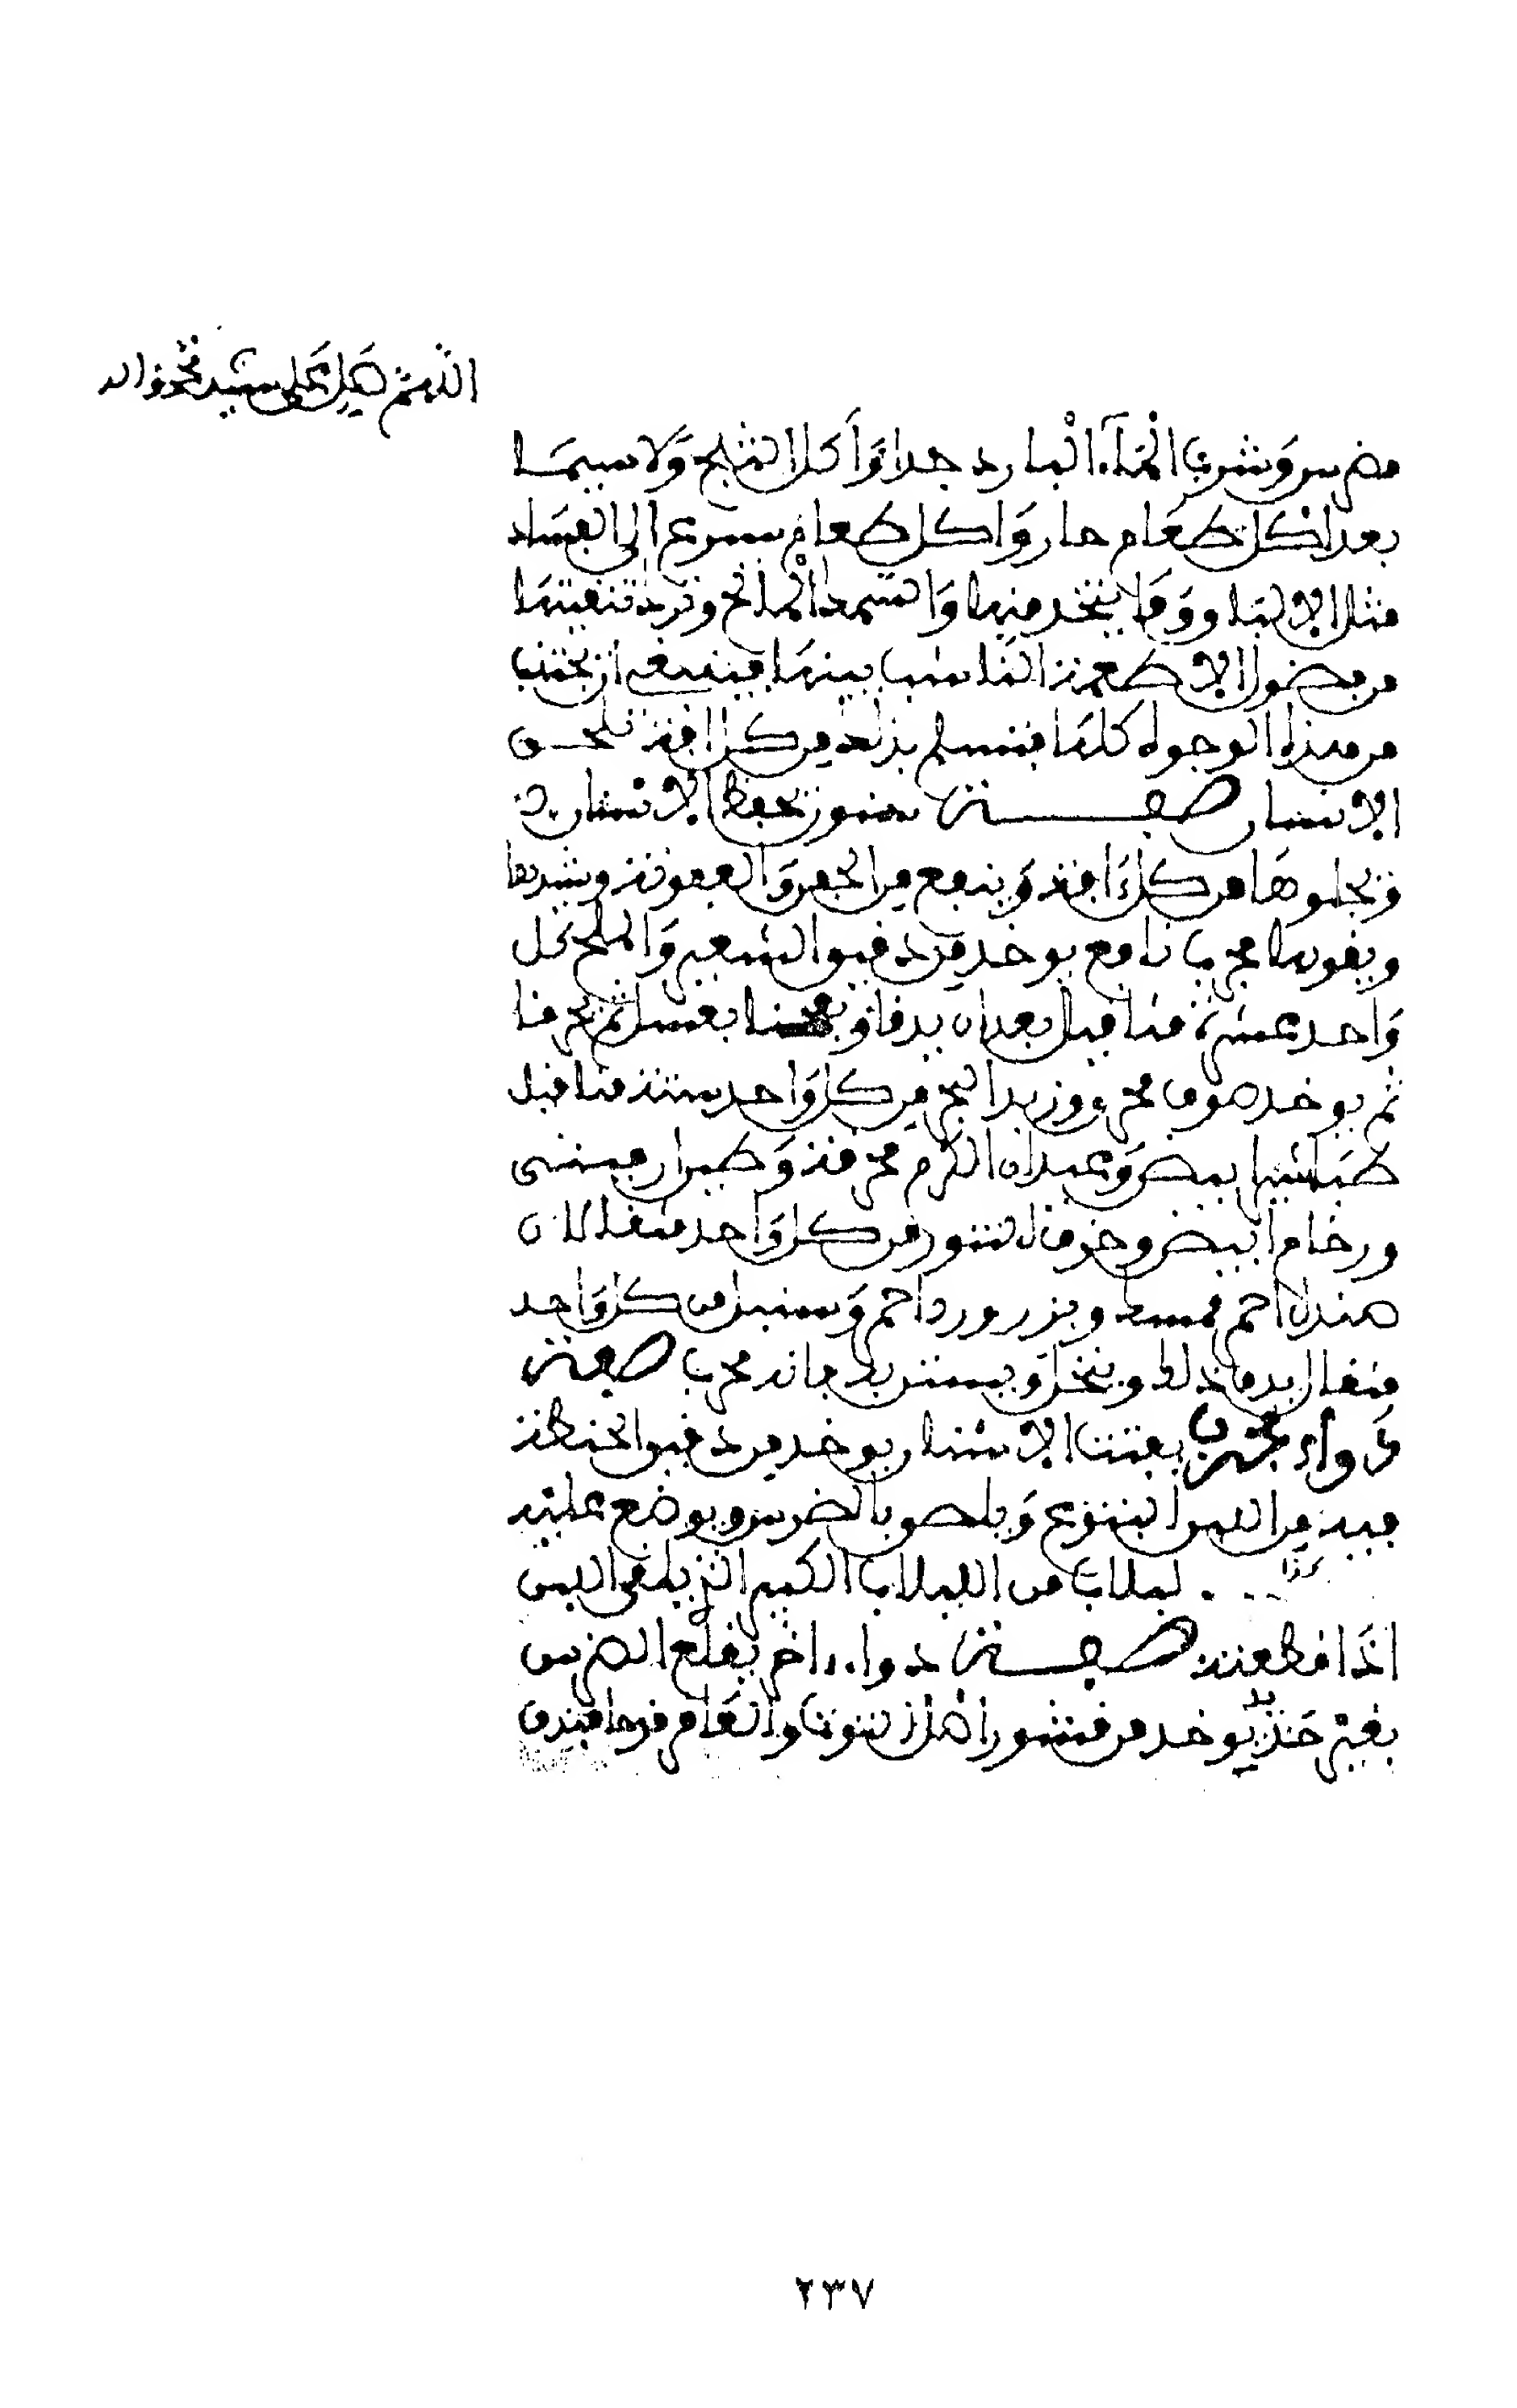 اللهم صل على سيدنا محمد واله
مضرس وشرب الماء البارد جدا وأكل الثلج ولا سيما
بعد أكل طعام حار وأكل طعام سريع الى الفساد
مثل الالبان وما يتخذ منها والسمك المالح وترك تنقيتها
من فضول الاطعمة الناشب بينها فينبغي ان يجتنب
من هذه الوجوه كلها فتسلم بذلك من كل افة تلحق
الاسنان صفة سنون يحفظ الاسنان
ويجلوها من كل افة وينفع من الحفر والعفونة ويشدها
ويقويها مجرب نافع يوخذ من دقيق الشعير والملح كل
واحد عشرة مثاقيل بعد ان يدقا ويعجنا بعسل ثم يحرقا
ثم يوخذ صوف محرق وزبد البحر من كل واحد ستة مثاقيل
طباشير ابيض وعيدان الكرم محرقة وطين ارميني
ورخام ابيض وخزف التنور من كل واحد مثقالان
صندل احمر ومسك وبزر ورد احمر وسنبل من كل واحد
مثقال يدق ذلك وينخل ويستن به فانه مجرب صفة
دواء مجرب يفتت الاسنان يوخذ من دقيق الحنطة
فيه من اللبن اليتوع ويلصق بالضرس ويوضع عليه
كذا لبلاب من اللبلاب الكبير الذي يلقى اللبن
اذا قطعته صفة دواء اخر يقلع الضرس
بغير حديد يوخذ من قشور اصل التوت والعاقرقرحا فيدق
٢٣٧